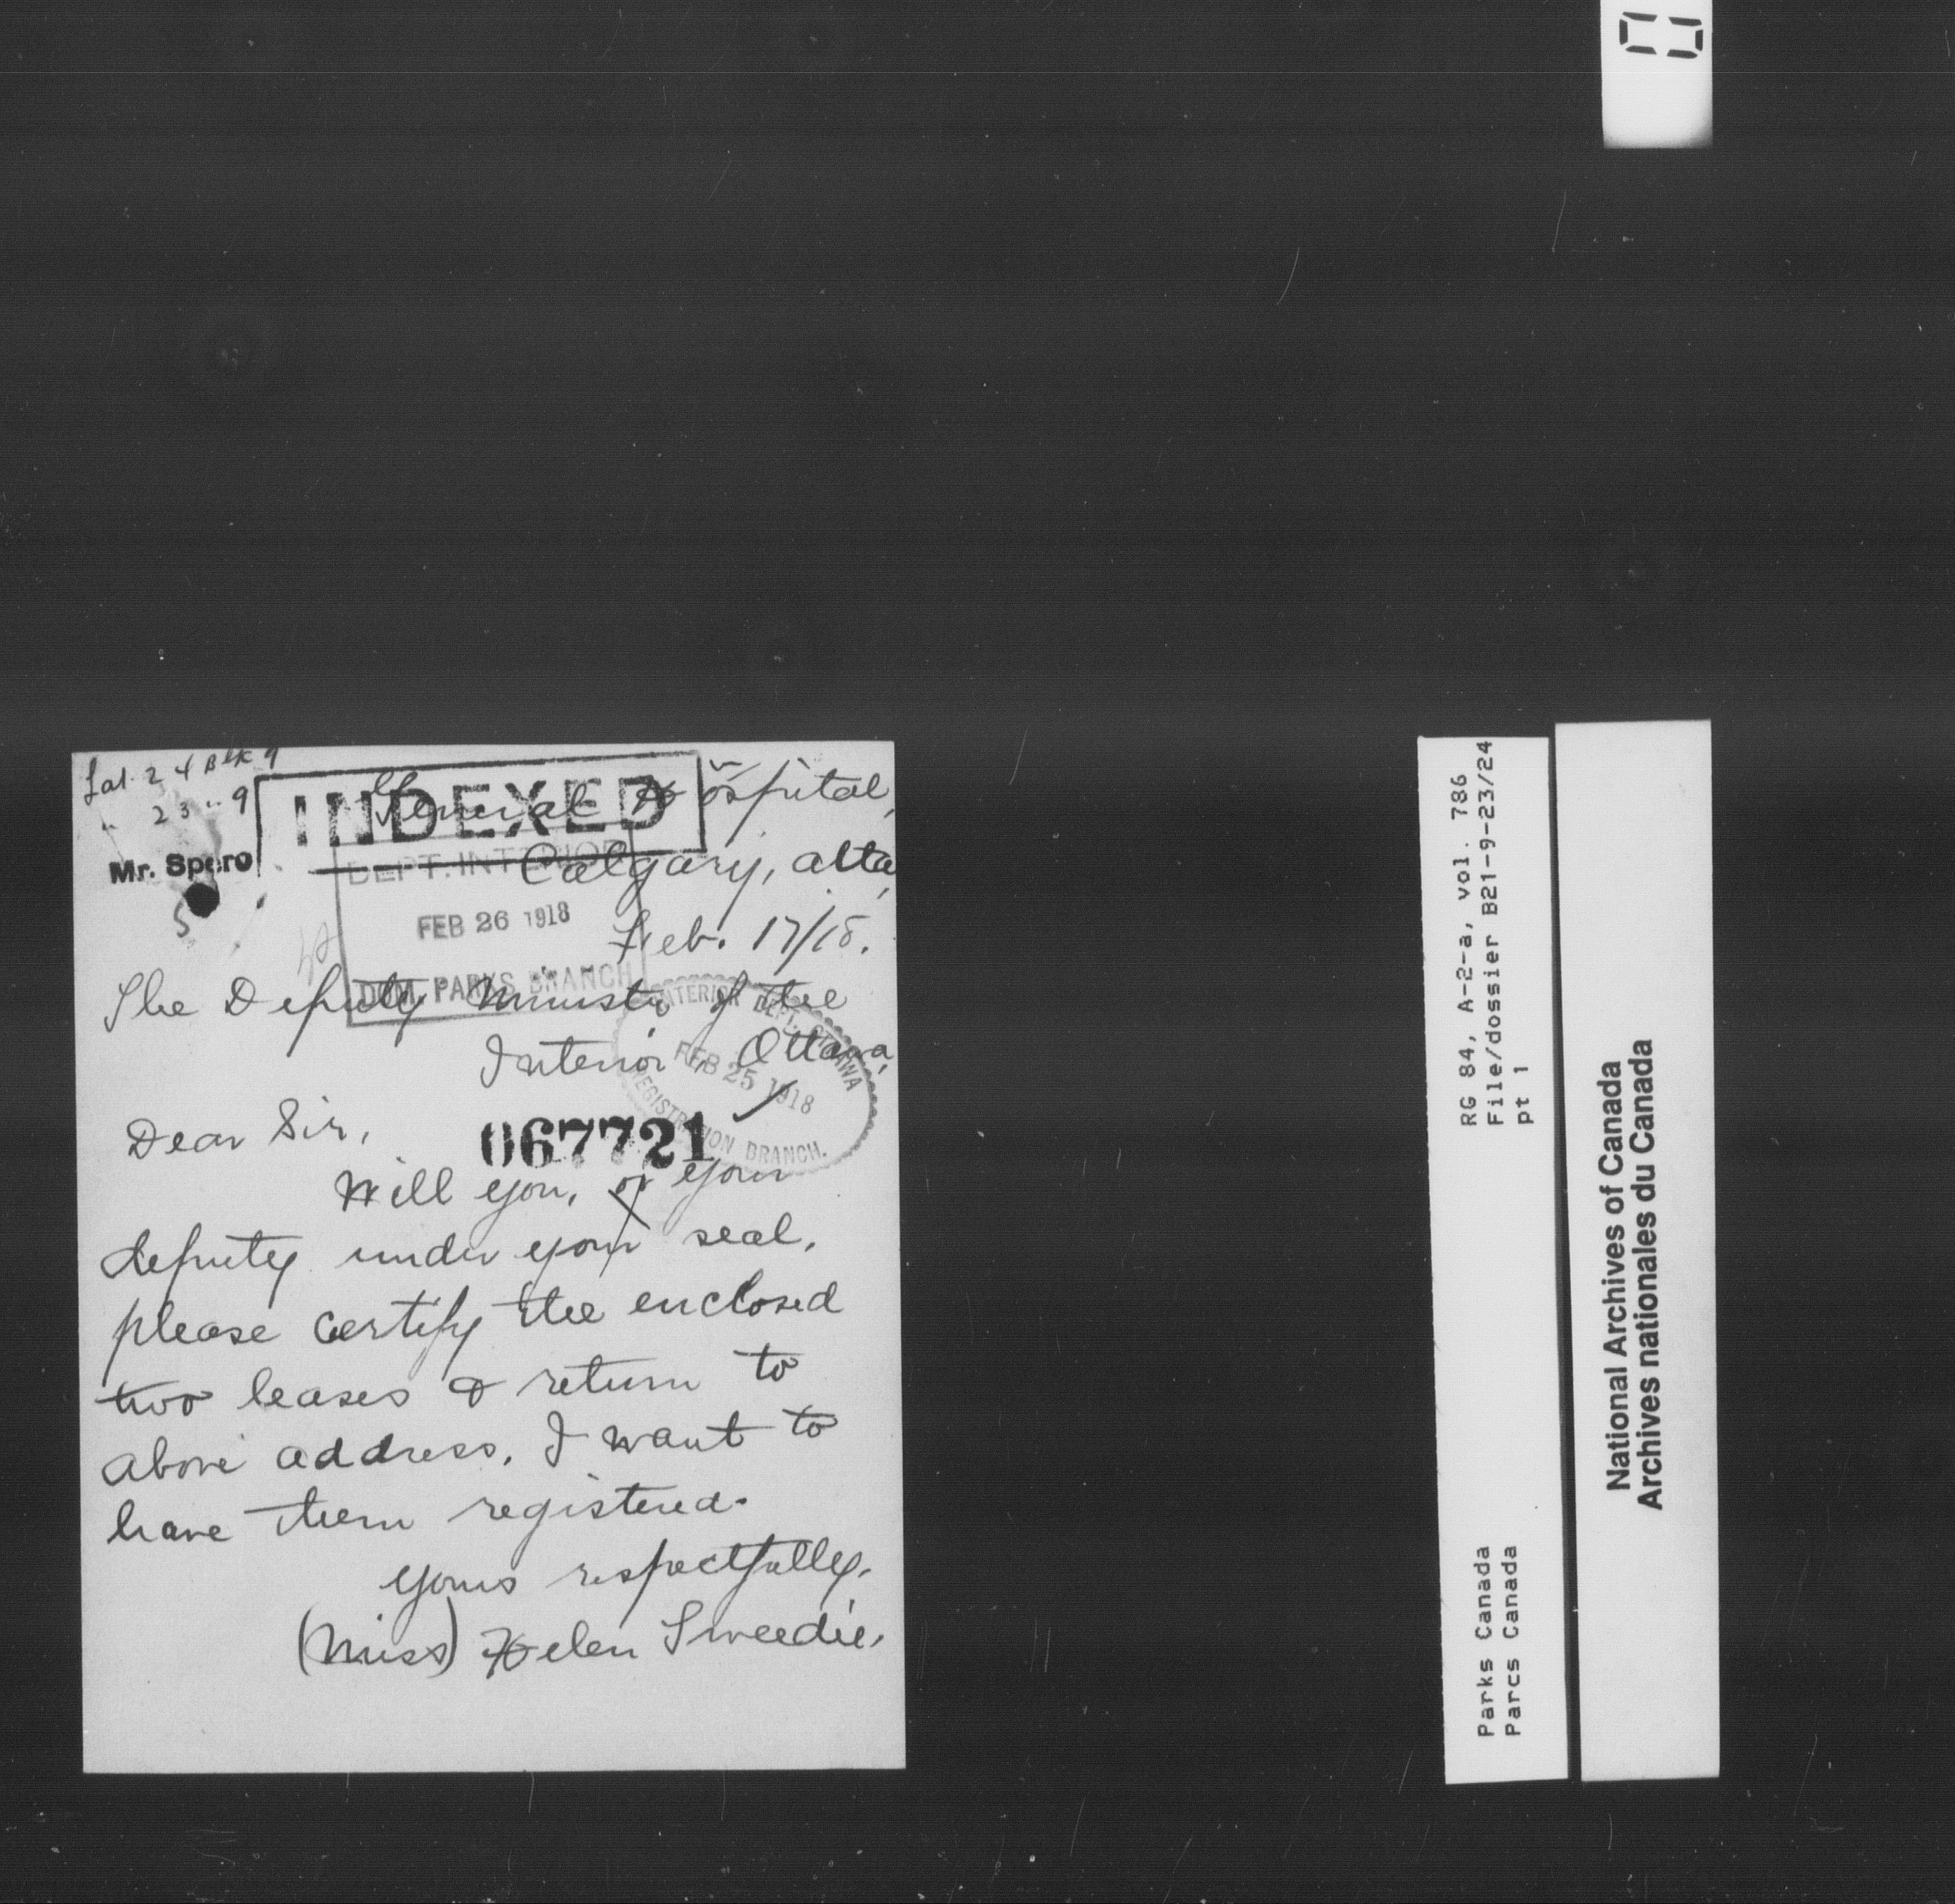 Lot 24 Blk 9
" 23 " 9
INDEXED
Mr. Spero
General Hospital,
Calgary, Alta,
DEPT. INTERIOR
FEB 26 1918
DOM. PARKS BRANCH
Feb. 17/18.
The Deputy Minister of the
Interior, Ottawa,
INTERIOR DEPT. OTTAWA
FEB 25 1918
REGISTRATION BRANCH.
Dear Sir,
067721
Will you, or your
deputy under your seal,
please certify the enclosed
two leases & return to
above address. I want to
have them registered.
Yours respectfully,
(Miss) Helen Tweedie.
RG 84, A-2-a, vol. 786
File/dossier B21-9-23/24
pt 1
Parks Canada
Parcs Canada
National Archives of Canada
Archives nationales du Canada